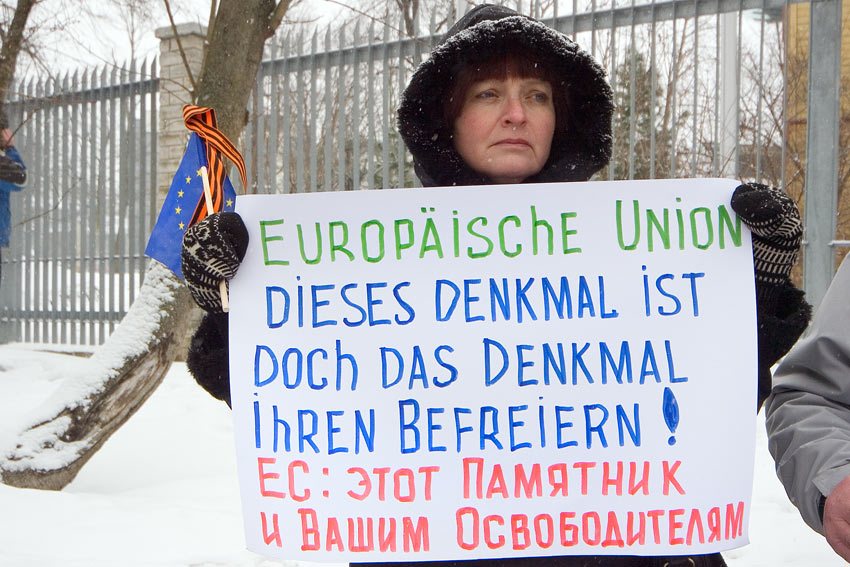 EUROPÄISCHE UNION
DIESES DENKMAL IST
DOCH DAS DENKMAL
IHREN BEFREIERN!
ЕС: ЭТОТ ПАМЯТНИК
И ВАШИМ ОСВОБОДИТЕЛЯМ